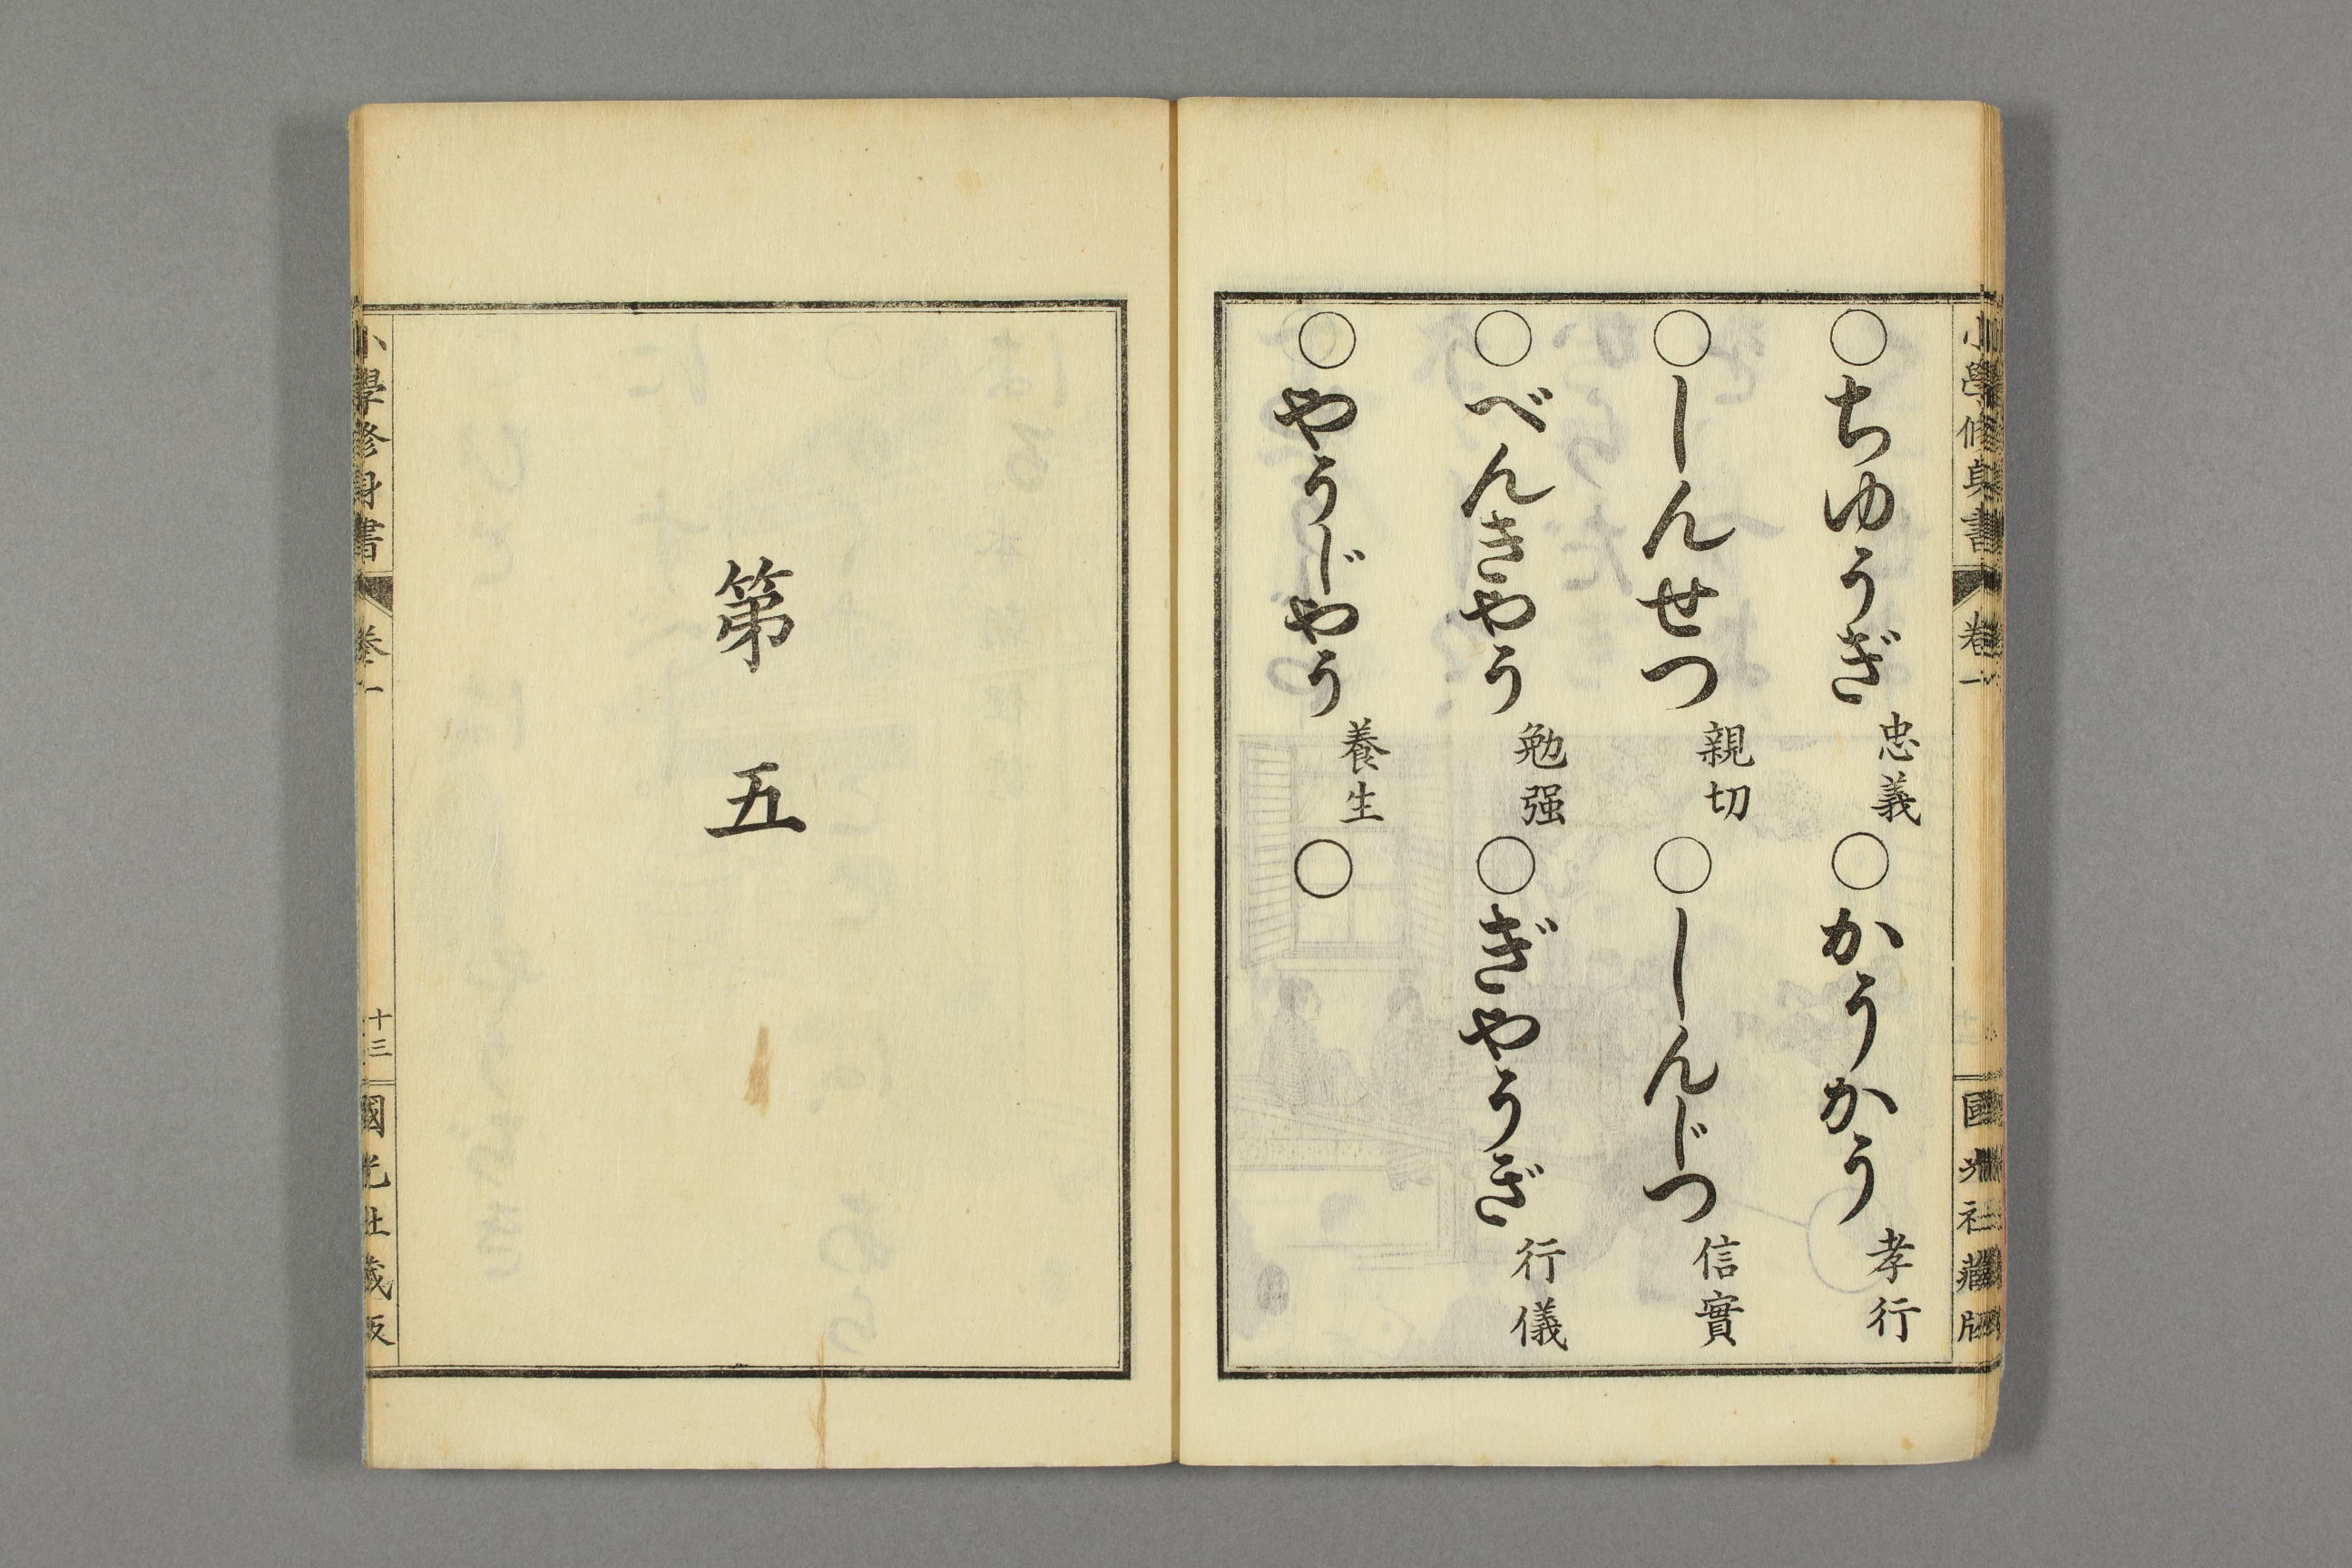 小學修身書 卷一 國光社藏版
○ちゆうぎ忠義○かうかう孝行
○しんせつ親切○しんじつ信實
○べんきやう勉强○ぎやうぎ行儀
○やうじやう養生○
第五
小學修身書 卷一 十三 國光社藏版